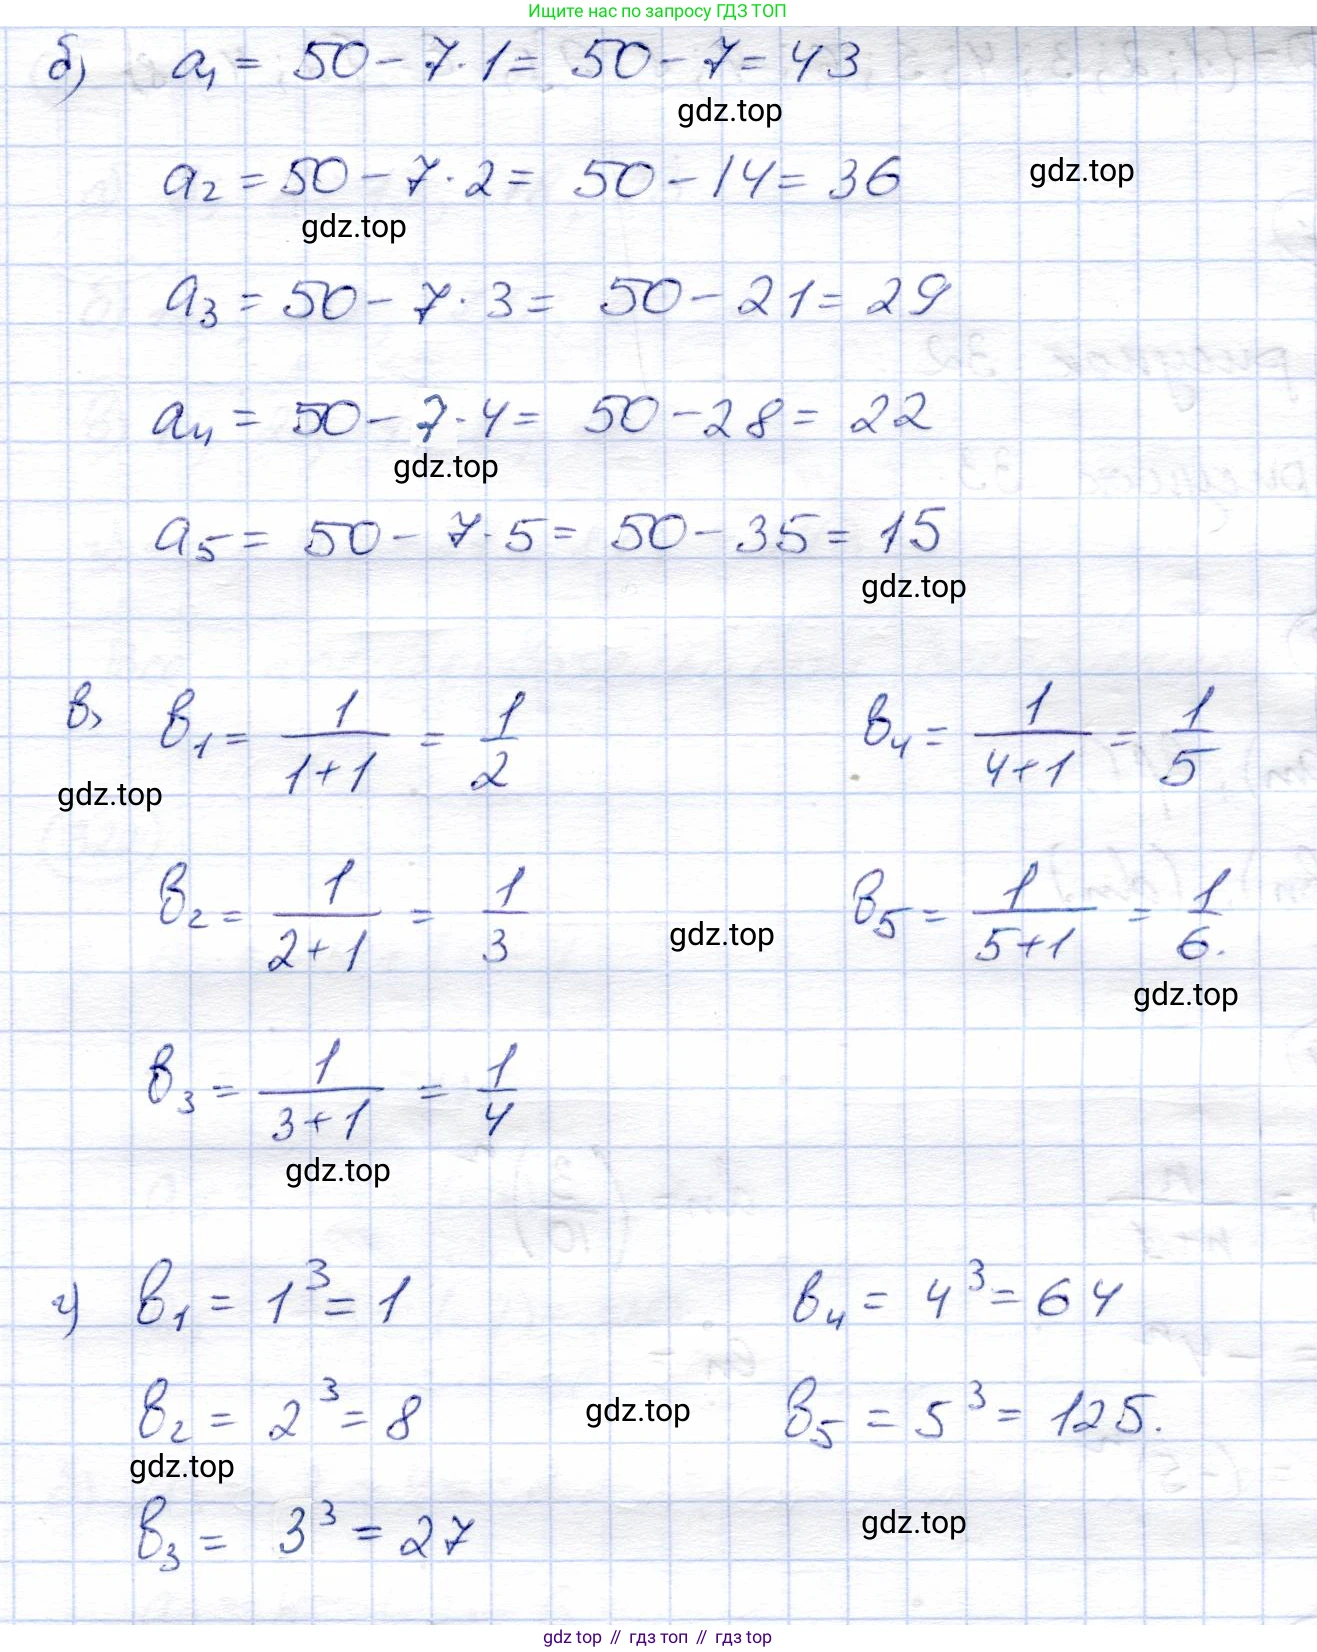 Ищите нас по запросу ГДЗ ТОП
б) a₁ = 50 - 7 · 1 = 50 - 7 = 43
gdz.top
a₂ = 50 - 7 · 2 = 50 - 14 = 36
gdz.top
gdz.top
a₃ = 50 - 7 · 3 = 50 - 21 = 29
a₄ = 50 - 7 · 4 = 50 - 28 = 22
gdz.top
a₅ = 50 - 7 · 5 = 50 - 35 = 15
gdz.top
в) b₁ = 1/(1+1) = 1/2   b₄ = 1/(4+1) = 1/5
gdz.top
b₂ = 1/(2+1) = 1/3   b₅ = 1/(5+1) = 1/6.
gdz.top
gdz.top
b₃ = 1/(3+1) = 1/4
gdz.top
г) b₁ = 1³ = 1   b₄ = 4³ = 64
b₂ = 2³ = 8   b₅ = 5³ = 125.
gdz.top
gdz.top
b₃ = 3³ = 27
gdz.top
gdz top // гдз топ // gdz top